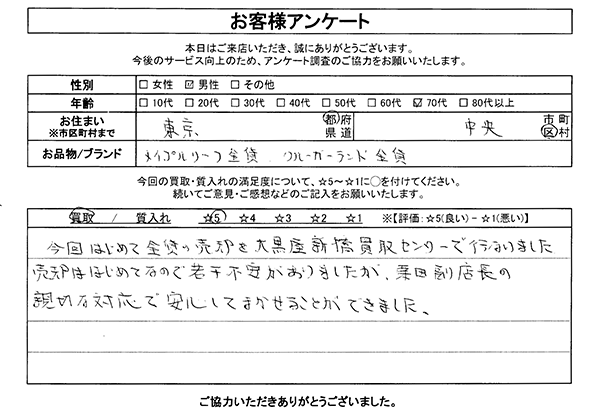 お客様アンケート
本日はご来店いただき、誠にありがとうございます。
今後のサービス向上のため、アンケート調査のご協力をお願いいたします。
性別 □ 女性 ☑ 男性 □ その他
年齢 □ 10代 □ 20代 □ 30代 □ 40代 □ 50代 □ 60代 ☑ 70代 □ 80代以上
お住まい 東京 都府 中央 市町
※市区町村まで 県道 区村
お品物/ブランド メイプルリーフ金貨 クルーガーランド金貨
今回の買取・質入れの満足度について、☆5～☆1に○を付けてください。
続いてご意見・ご感想などのご記入をお願いいたします。
買取 / 質入れ ☆5 ☆4 ☆3 ☆2 ☆1 ※【評価:☆5(良い)－☆1(悪い)】
今回はじめて金貨の売却を大黒屋新橋買取センターで行ないました
売却ははじめてなので若干不安がありましたが、栗田副店長の
親切な対応で安心してまかせることができました。
ご協力いただきありがとうございました。